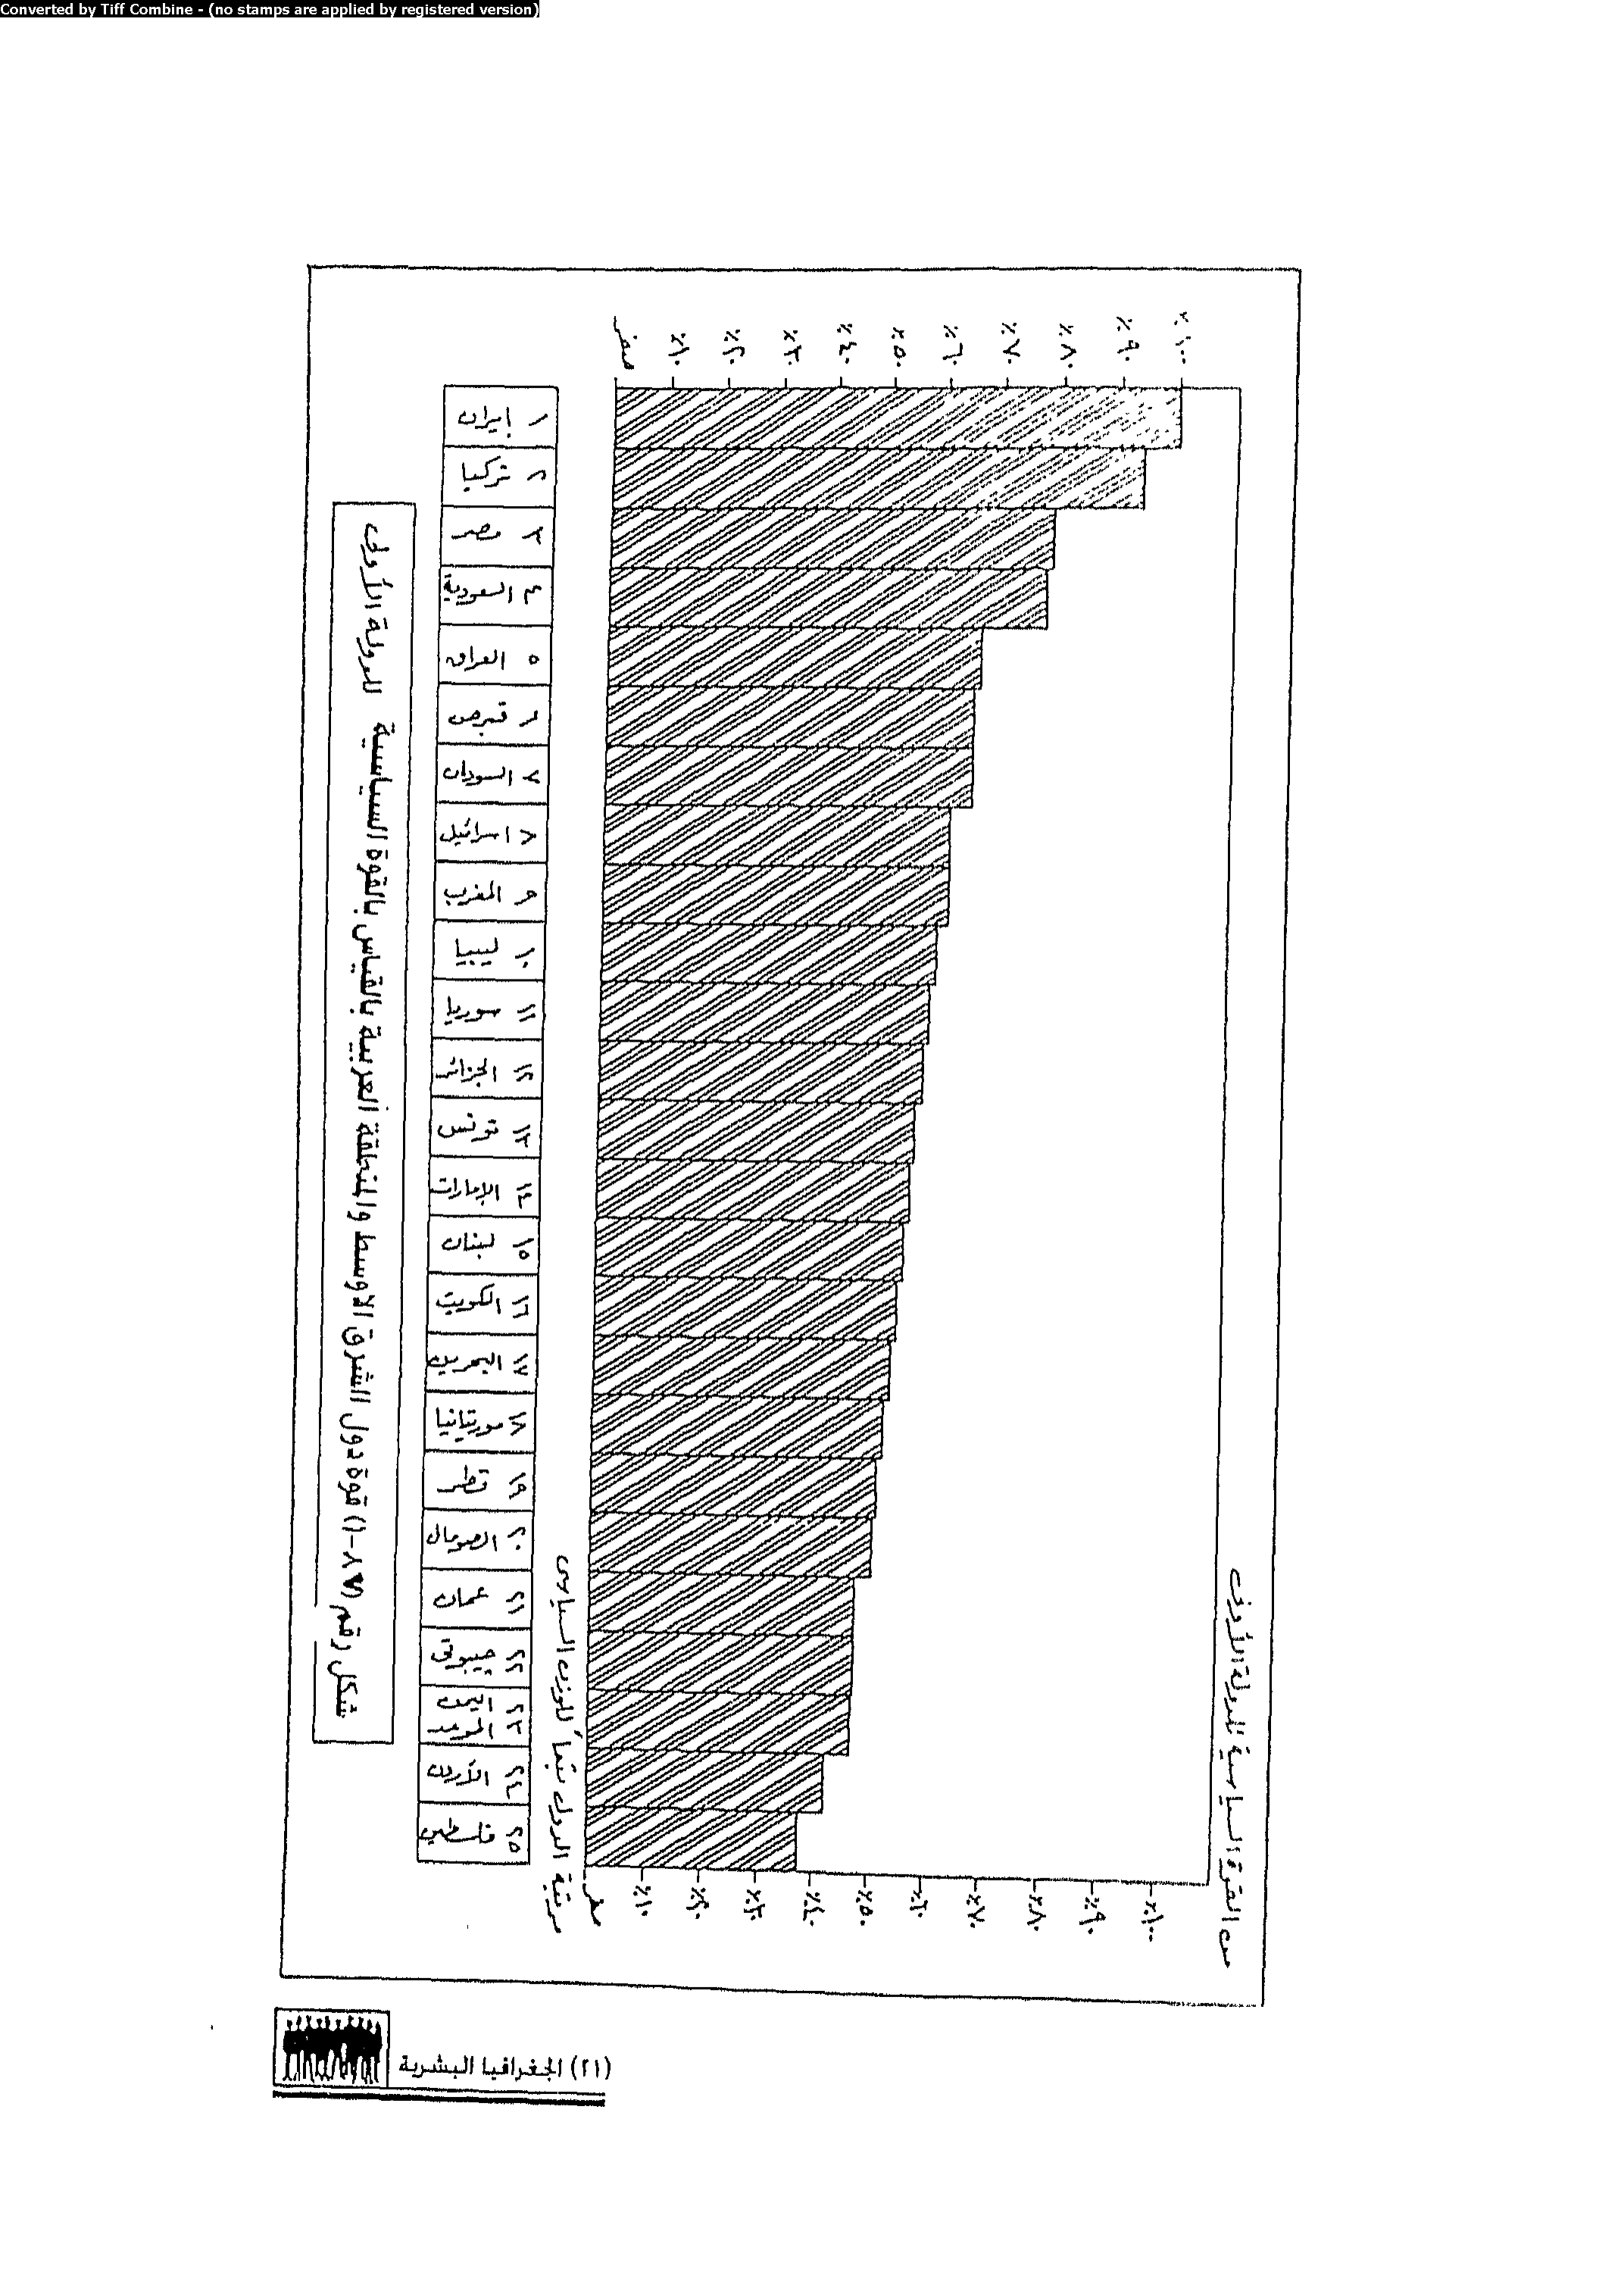 Converted by Tiff Combine - (no stamps are applied by registered version)
من القوة السياسية للدولة الأولى
٪١٠٠
٪٩٠
٪٧٠
٪٨٠
٪٦٠
٪٥٠
٪٤٠
٪٣٠
٪٢٠
٪١٠
صفر
٪١٠٠
٪٩٠
٪٨٠
٪٧٠
٦٠
٪٥٠
٪٤٠
٪٣٠
٪٢٠
٪١٠
صفر
مرتبة الدول تبعاً للوزن السياسى
١ إيران
٢ تركيا
٣ مصر
٤ السعودية
٥ العراق
٦ قبرص
٧ السودان
٨ اسرائيل
٩ المغرب
١٠ ليبيا
١١ سوريا
١٢ الجزائر
١٣ تونس
١٤ الإمارات
١٥ لبنان
١٦ الكويت
١٧ البحرين
١٨ موريتانيا
١٩ قطر
٢٠ الصومال
٢١ عمان
٢٢ جيبوتى
٢٣ اليمن الموحد
٢٤ الأردن
٢٥ فلسطين
شكل رقم (٨٧-١) قوة دول الشرق الأوسط والمنطقة العربية بالقياس بالقوة السياسية للدولة الأولى
(٢١) الجغرافيا البشرية